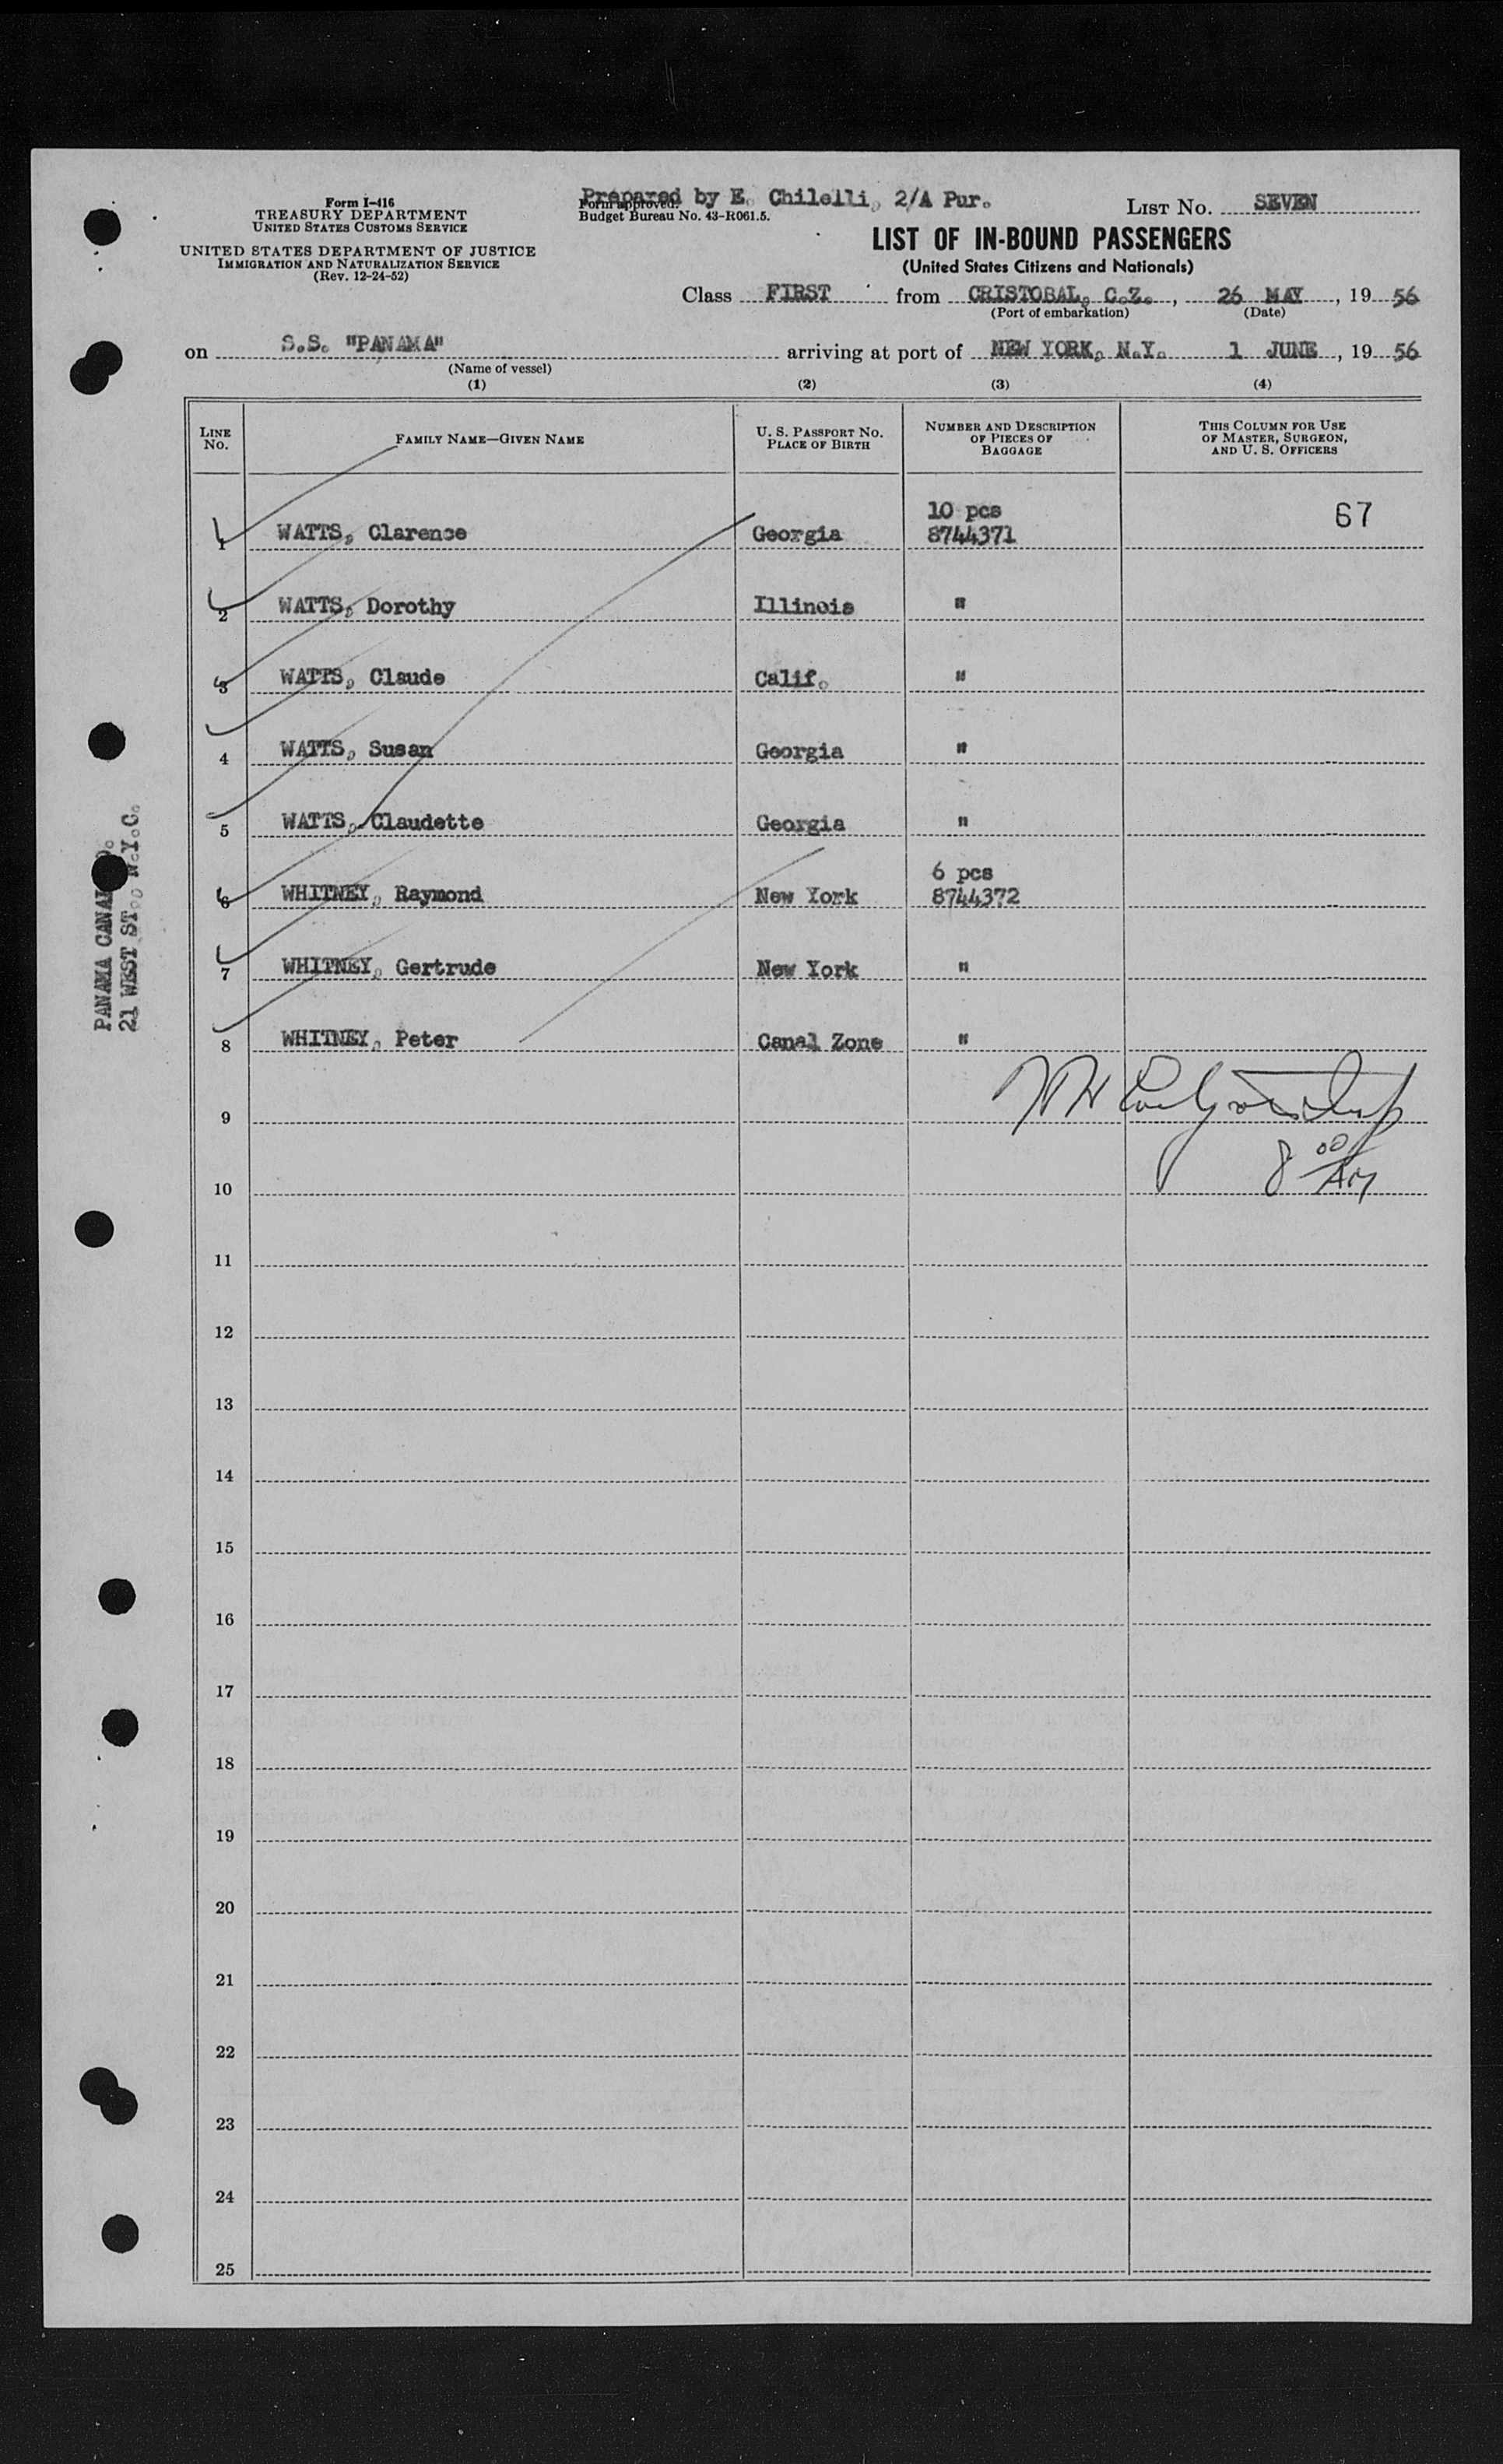 Form I-416
TREASURY DEPARTMENT
UNITED STATES CUSTOMS SERVICE
UNITED STATES DEPARTMENT OF JUSTICE
IMMIGRATION AND NATURALIZATION SERVICE
(Rev. 12-24-52)
Prepared by E. Chilelli, 2/A Pur.
Form approved.
Budget Bureau No. 43-R061.5.
LIST NO. SEVEN
LIST OF IN-BOUND PASSENGERS
(United States Citizens and Nationals)
Class FIRST from CRISTOBAL, C.Z., 26 MAY, 19 56
(Port of embarkation) (Date)
on S.S. "PANAMA" arriving at port of NEW YORK, N.Y. 1 JUNE, 19 56
(Name of vessel)
(1) (2) (3) (4)
LINE NO. FAMILY NAME—GIVEN NAME U. S. PASSPORT NO. PLACE OF BIRTH NUMBER AND DESCRIPTION OF PIECES OF BAGGAGE THIS COLUMN FOR USE OF MASTER, SURGEON, AND U. S. OFFICERS
10 pcs 67
1 WATTS, Clarence Georgia 8744371
2 WATTS, Dorothy Illinois "
3 WATTS, Claude Calif. "
4 WATTS, Susan Georgia "
5 WATTS, Claudette Georgia "
6 pcs
6 WHITNEY, Raymond New York 8744372
7 WHITNEY, Gertrude New York "
8 WHITNEY, Peter Canal Zone "
9
8 00 AM
10
11
12
13
14
15
16
17
18
19
20
21
22
23
24
25
PANAMA CANAL
21 WEST ST., N.Y.C.